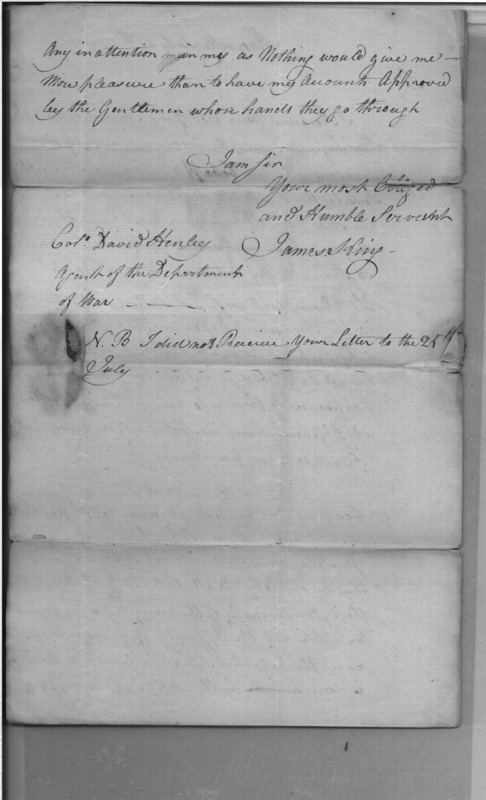 Any inattention in me as Nothing would give me —
More pleasure than to have my Accounts Approved
by the Gentlemen whose hands they go through
I am Sir
Your most Obliged
and Humble Servant
Colo. David Henley James King
Agent of the Department
of War
N. B I did not Receive Your Letter to the 25th
July